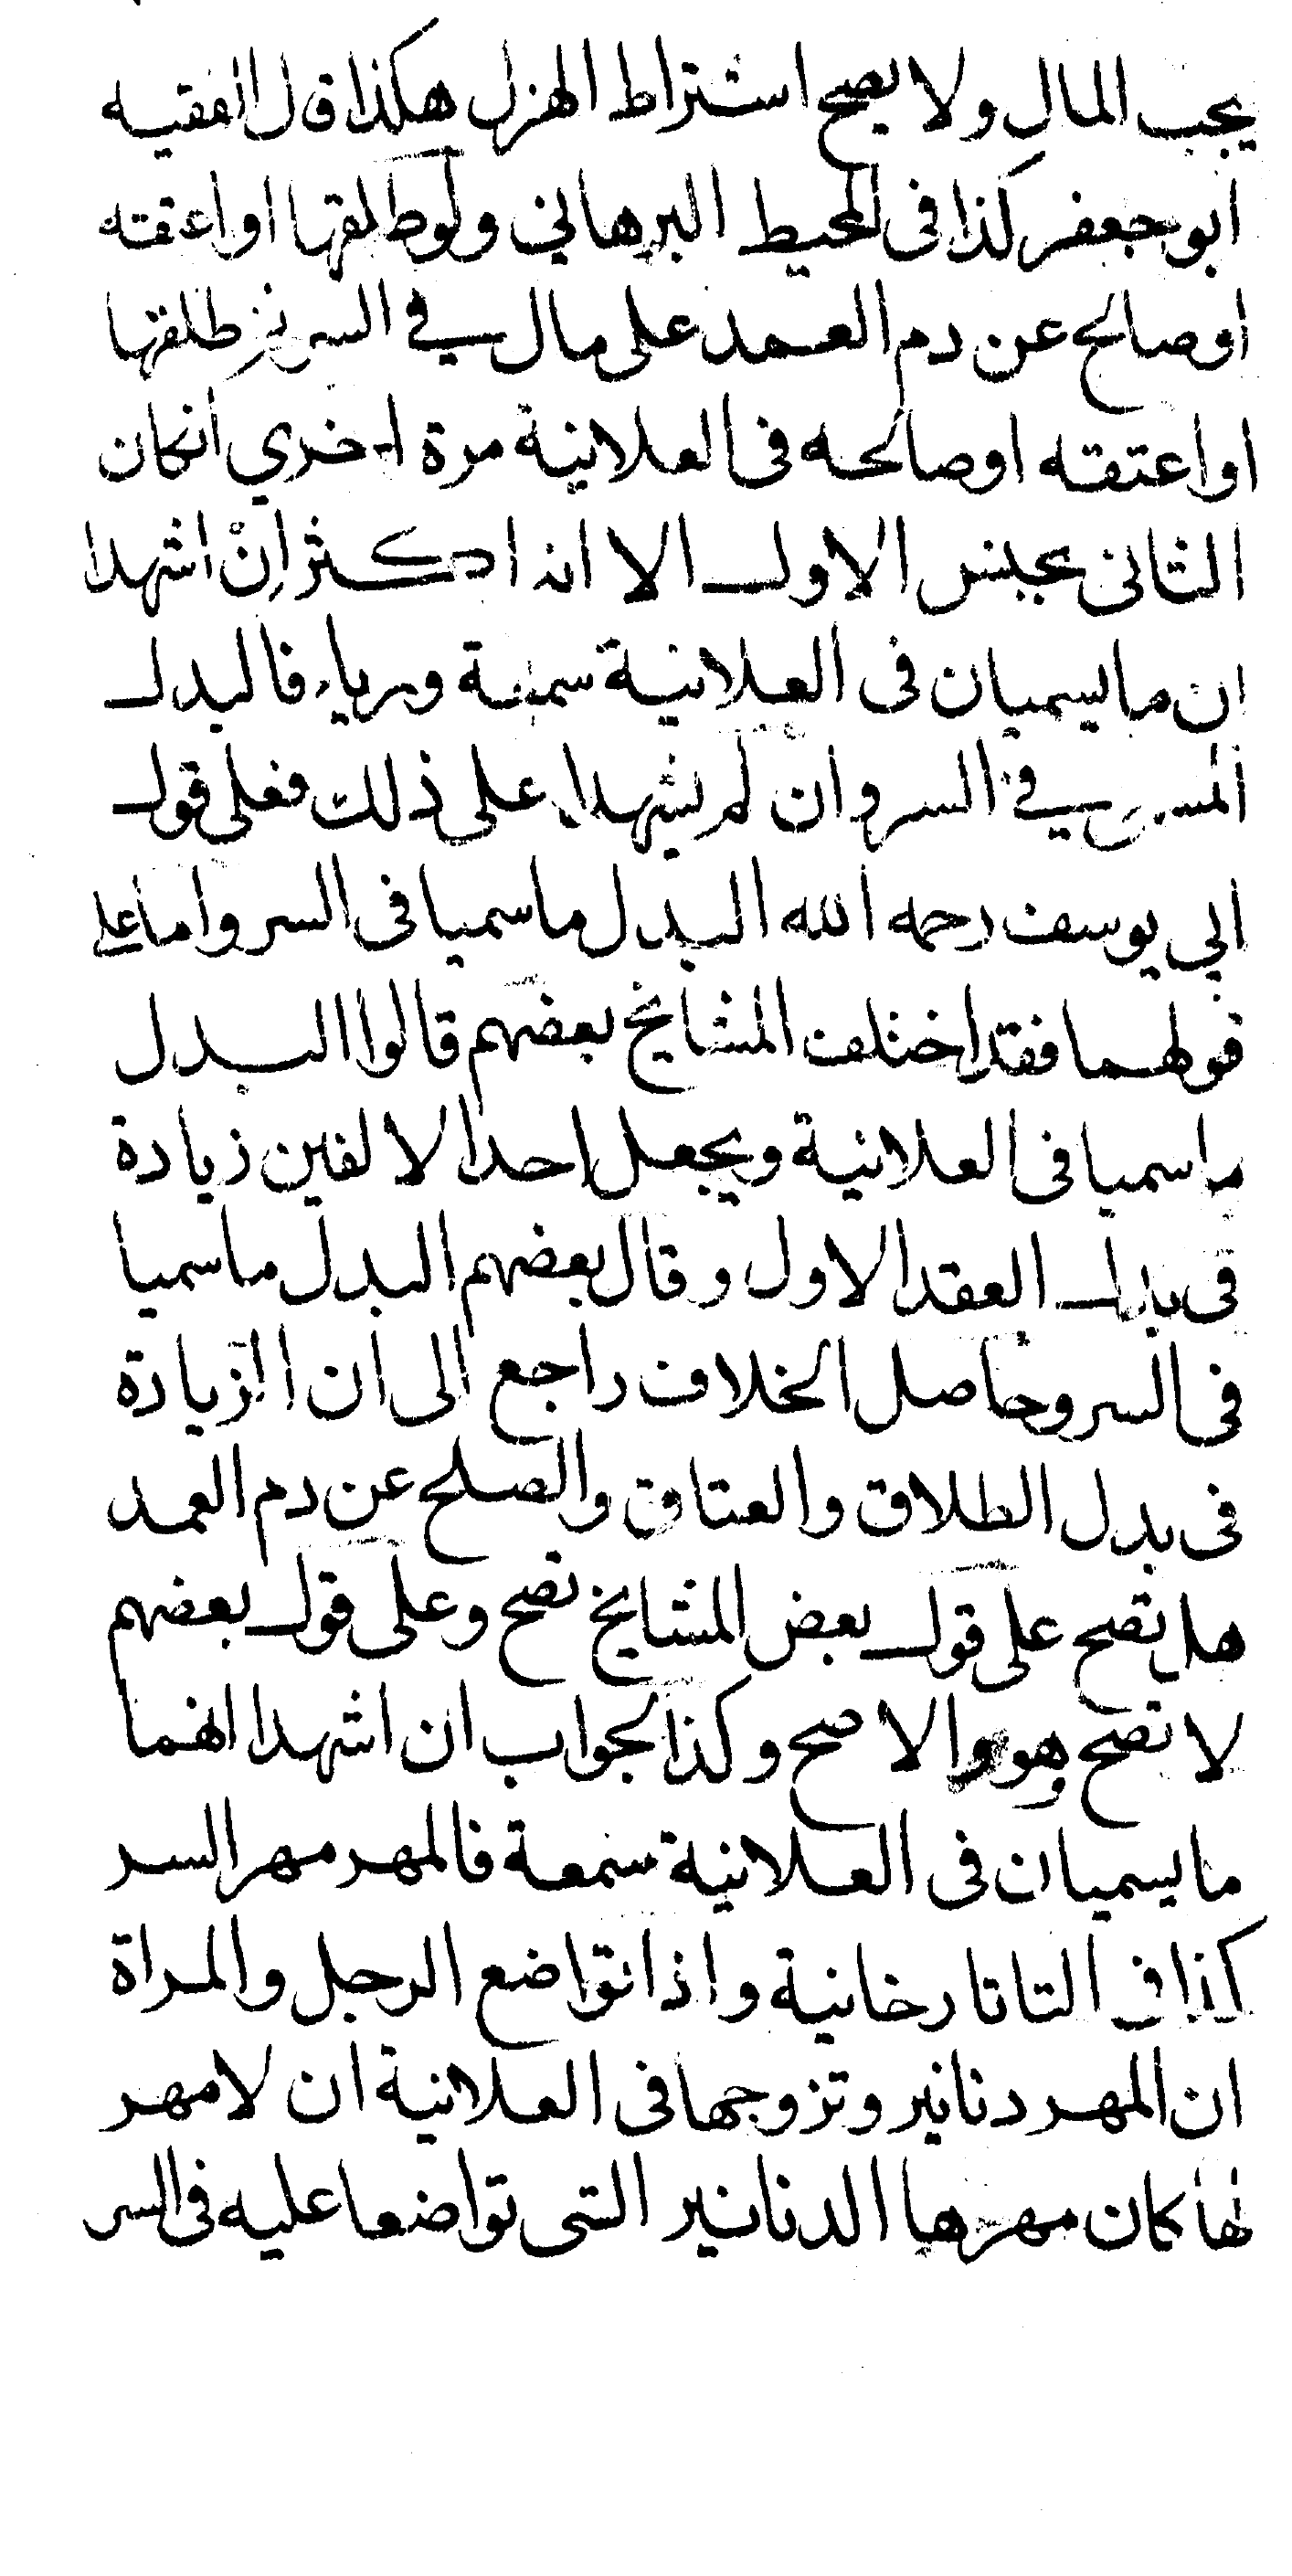 يجب المال ولا يصح اشتراط الهزل هكذا قال الفقيه
ابو جعفر كذا فى المحيط البرهاني ولو طلقها او اعتقه
او صالح عن دم العمد على مال في السر ثم طلقها
او اعتقه او صالحه فى العلانية مرة اخري ان كان
الثانى بجنس الاول الا انه اكثر اِنْ اشهدا
ان ما يسميان فى العلانية سمعة ورياء فالبدل
المسمى في السر وان لم يشهدا على ذلك فعلى قول
ابي يوسف رحمه الله البدل ما سميا فى السر واما على
قولهما فقد اختلف المشايخ بعضهم قالوا البدل
ما سميا فى العلانية ويجعل احد الالفين زيادة
فى بدل العقد الاول وقال بعضهم البدل ما سميا
فى السر وحاصل الخلاف راجع الى ان الزيادة
فى بدل الطلاق والعتاق والصلح عن دم العمد
هل تصح على قول بعض المشايخ تصح وعلى قول بعضهم
لا تصح وهو الاصح وكذا الجواب ان اشهدا انهما
ما يسميان فى العلانية سمعة فالمهر مهر السر
كذا فى التاتارخانية واذا تواضع الرجل والمراة
ان المهر دنانير وتزوجها فى العلانية ان لا مهر
لها كان مهرها الدنانير التى تواضعا عليه فى السر